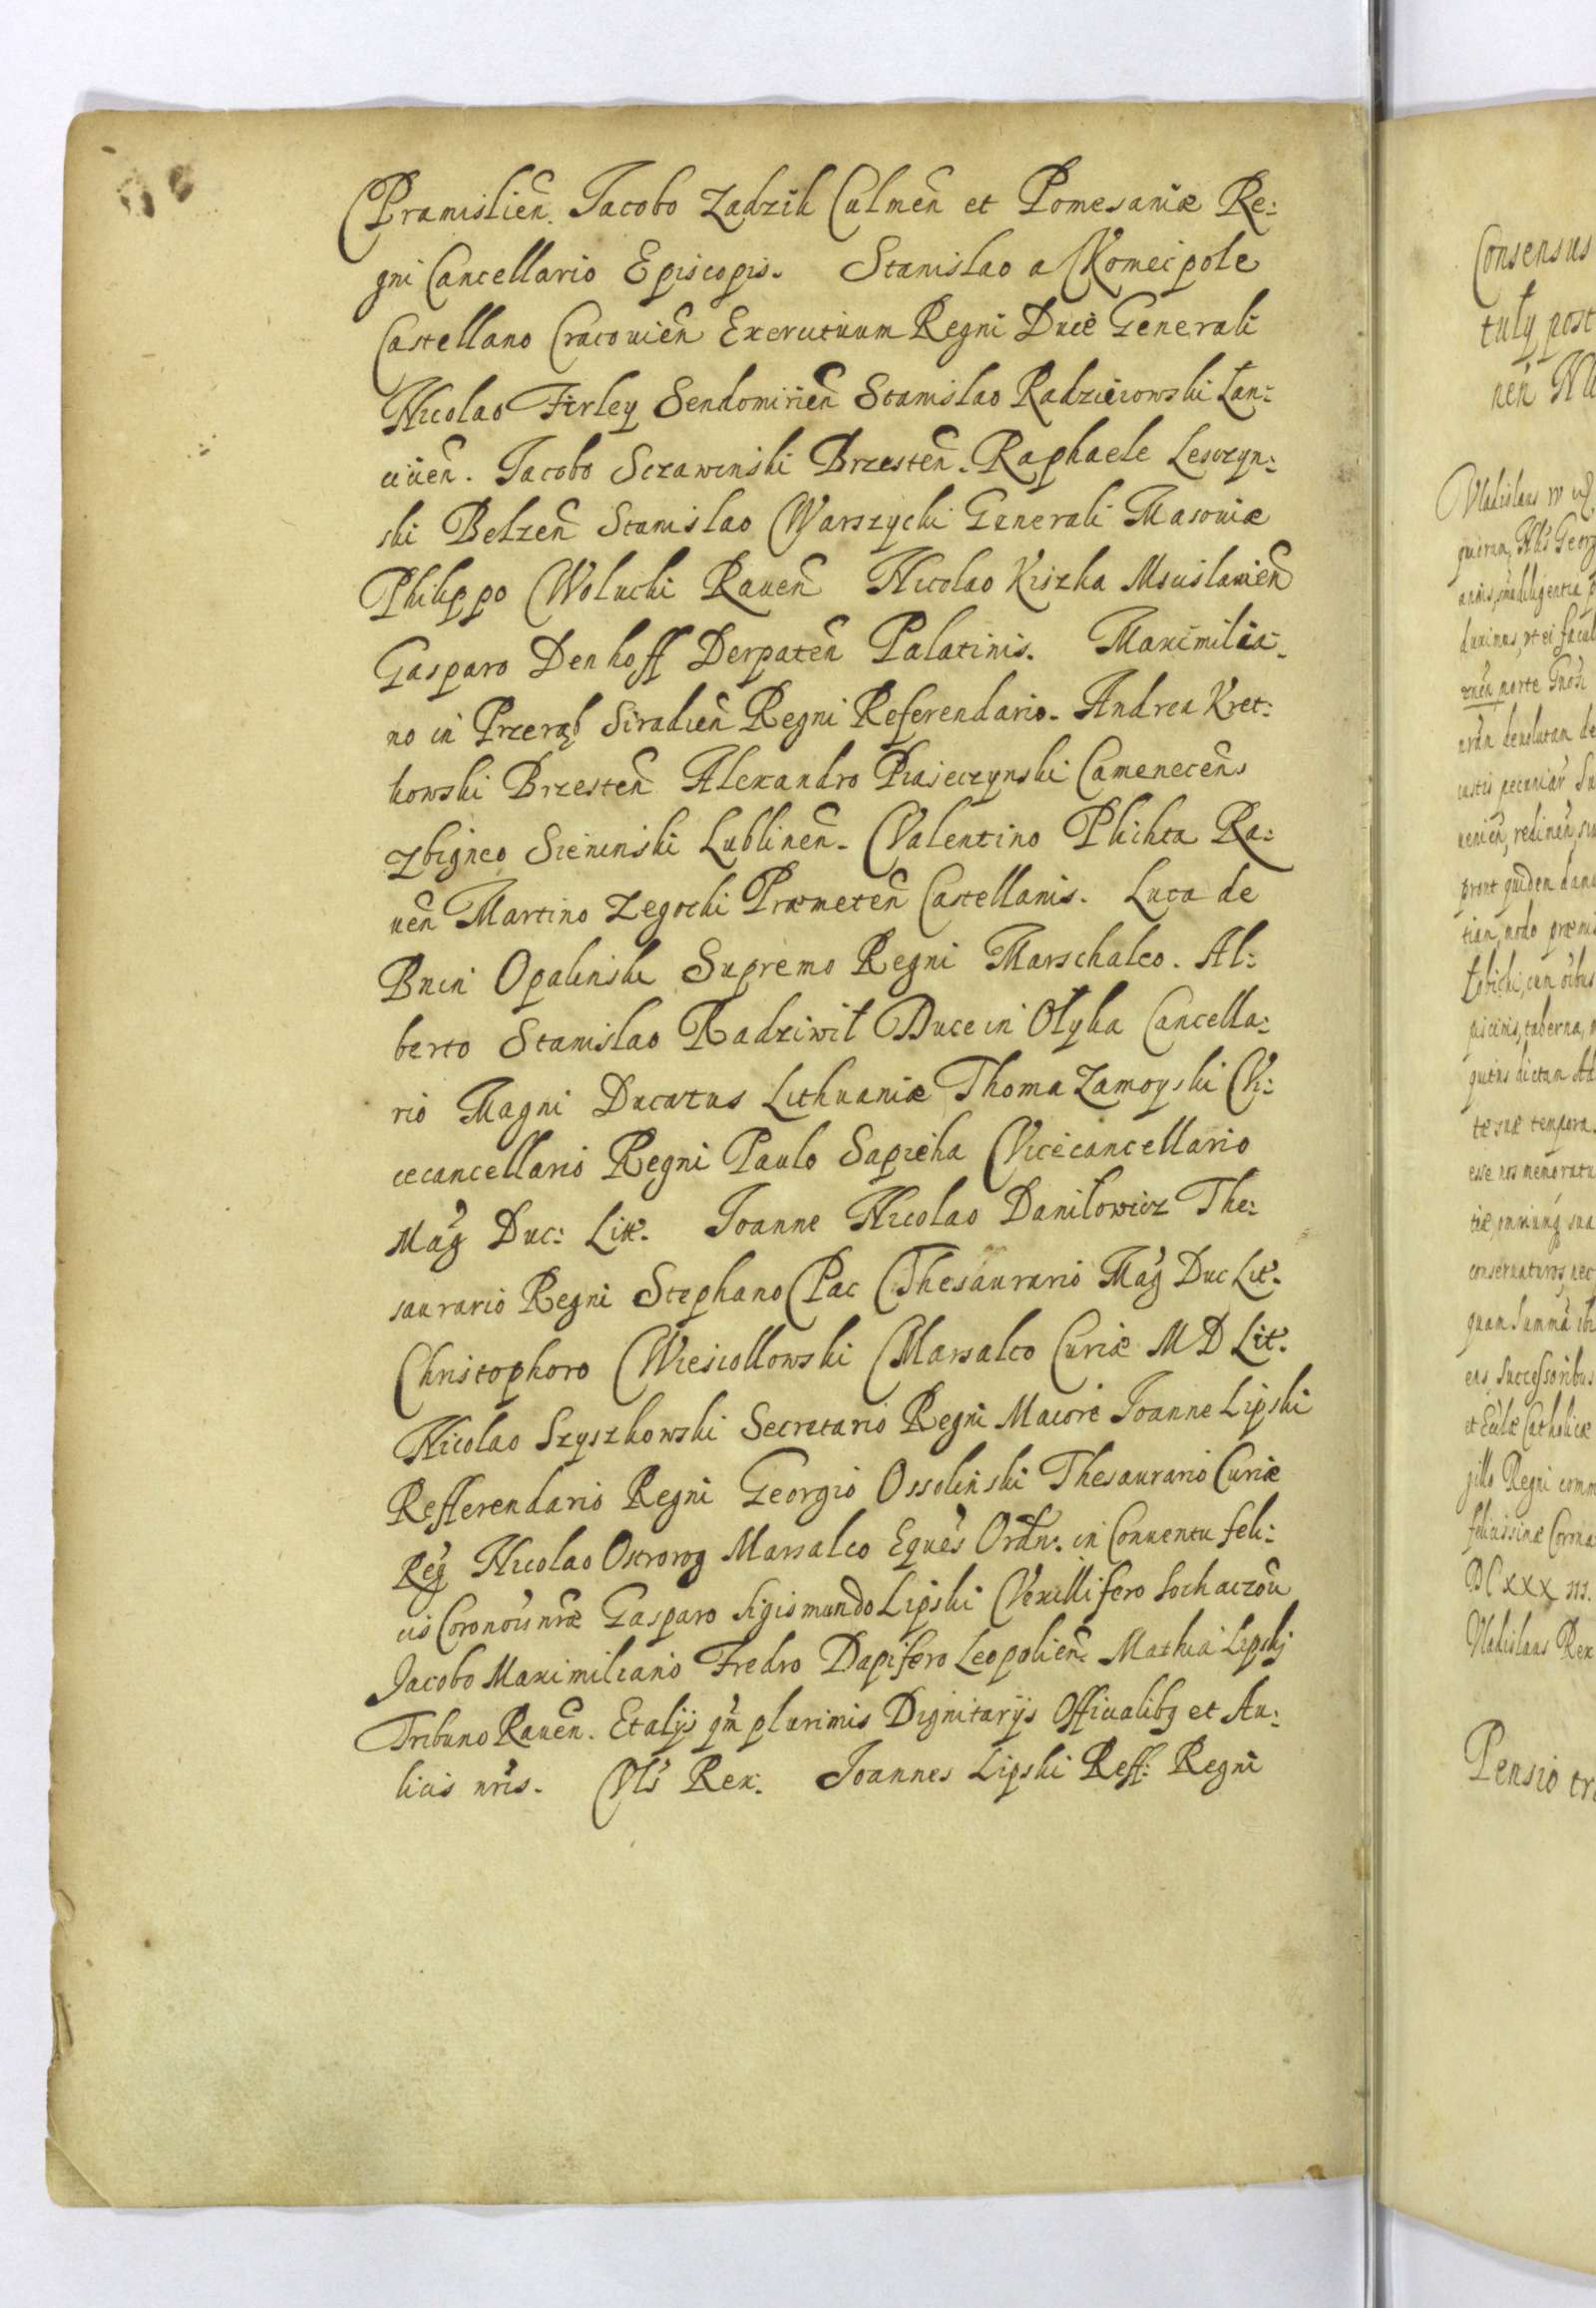 Præmislien̄. Jacobo Zadzik Culmen̄ et Pomesaniæ Re:
gni Cancellario Episcopis. Stanislao a Koniecpole
Castellano Cracovien̄ Exercituum Regni Duce Generali
Nicolao Firley Sendomirien̄ Stanislao Radzieiowski Lan:
cicien̄. Jacobo Sczawinski Brzesten̄. Raphaele Lesczyn:
ski Belzen̄ Stanislao Warszycki Generali Masoviæ
Philippo Wolucki Raven̄ Nicolao Kiszka Mscislavien̄
Gasparo Denhoff Derpaten̄ Palatinis. Maximilia:
no in Przerąb Siradien̄ Regni Referendario. Andrea Kret:
kowski Brzesten̄ Alexandro Piaseczynski Camenecen̄
Zbigneo Sieninski Lublinen̄. Valentino Plichta Ra:
uen̄ Martino Zegocki Præmeten̄ Castellanis. Luca de
Bnin Opalinski Supremo Regni Marschalco. Al:
berto Stanislao Radziwił Duce in Ołyka Cancella:
rio Magni Ducatus Lithuaniæ Thoma Zamoyski Vi:
cecancellario Regni Paulo Sapieha Vicecancellario
Mag Duc: Litt. Joanne Nicolao Daniłowicz The:
saurario Regni Stephano Pac Thesaurario Mag Duc Lit.
Christophoro Wiesiollowski Marsalco Curiæ M D Lit.
Nicolao Szyszkowski Secretario Regni Maiore Joanne Lipski
Refferendario Regni Georgio Ossolinski Thesaurario Curiæ
Reg Nicolao Ostrorog Marsalco Eques Ordn. in Conuentu feli:
cis Coronois nræ Gasparo Sigismundo Lipski Vexillifero Sochaczou
Jacobo Maximiliano Fredro Dapifero Leopolien̄. Mathia Lipskj
Tribuno Rauen̄. Et alijs qm plurimis Dignitarijs Officialibq et Au:
licis nris. Vls Rex. Joannes Lipski Reff: Regni
Consensus
post
Vladislaus IV
duximus, vt ei facul
morte
tæ suæ tempora.
successoribus
Catholicæ
gillo Regni comm
felicissimæ Corona
DCXXXIII.
Vladislaus Rex
Pensio